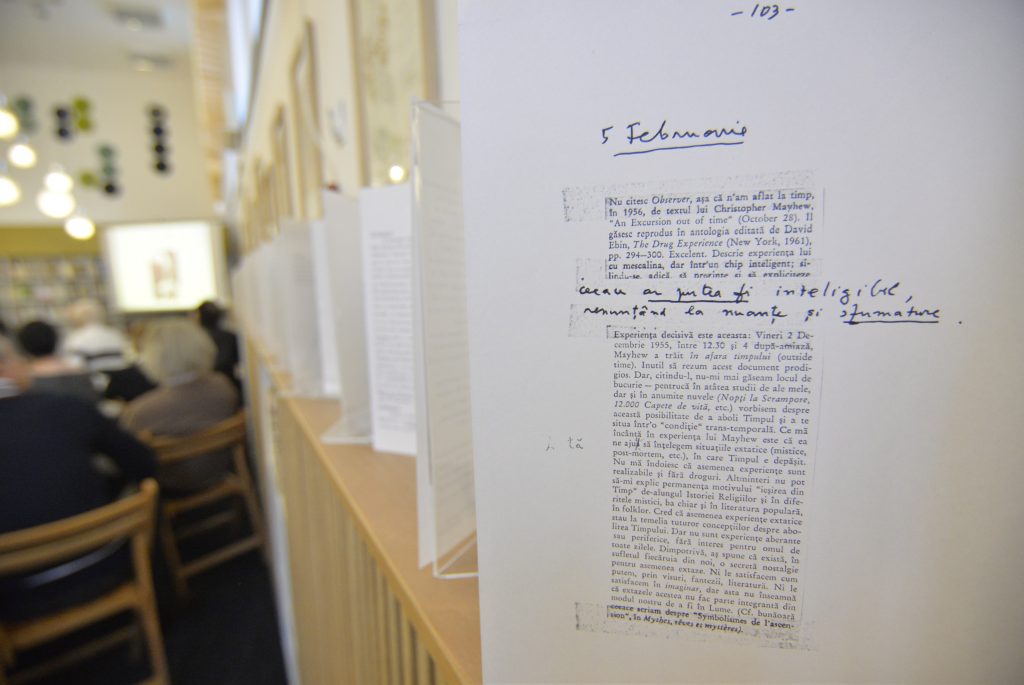 - 103 -
5 Februarie
Nu citesc Observer, aşa că n'am aflat la timp,
în 1956, de textul lui Christopher Mayhew,
"An Excursion out of time" (October 28). Îl
găsesc reprodus în antologia editată de David
Ebin, The Drug Experience (New York, 1961),
pp. 294—300. Excelent. Descrie experienţa lui
cu mescalina, dar într'un chip inteligent; si-
lindu-se, adică, să prezinte şi să expliciteze
ceeace ar putea fi inteligibil,
renunţând la nuanţe şi sfumature.
Experienţa decisivă este aceasta: Vineri 2 De-
cembrie 1955, între 12.30 şi 4 după-amiază,
Mayhew a trăit în afara timpului (outside
time). Inutil să rezum acest document prodi-
gios. Dar, citindu-l, nu-mi mai găseam locul de
bucurie — pentrucă în atâtea studii de ale mele,
dar şi în anumite nuvele (Nopţi la Serampore,
12.000 Capete de vită, etc.) vorbisem despre
această posibilitate de a aboli Timpul şi a te
situa într'o "condiţie" trans-temporală. Ce mă
încântă în experienţa lui Mayhew este că ea
tă
ne ajut să înţelegem situaţiile extatice (mistice,
post-mortem, etc.), în care Timpul e depăşit.
Nu mă îndoiesc că asemenea experienţe sunt
realizabile şi fără droguri. Altminteri nu pot
să-mi explic permanenţa motivului "ieşirea din
Timp" de-alungul Istoriei Religiilor şi în dife-
ritele mistici, ba chiar şi în literatura populară,
în folklor. Cred că asemenea experienţe extatice
stau la temelia tuturor concepţiilor despre abo-
lirea Timpului. Dar nu sunt experienţe aberante
sau periferice, fără interes pentru omul de
toate zilele. Dimpotrivă, aş spune că există, în
sufletul fiecăruia din noi, o secretă nostalgie
pentru asemenea extaze. Ni le satisfacem cum
putem, prin visuri, fantezii, literatură. Ni le
satisfacem în imaginar, dar asta nu înseamnă
că extazele acestea nu fac parte integrantă din
modul nostru de a fi în Lume. (Cf. bunăoară
ceeace scriam despre "Symbolismes de l'ascen-
sion", în Mythes, rêves et mystères).